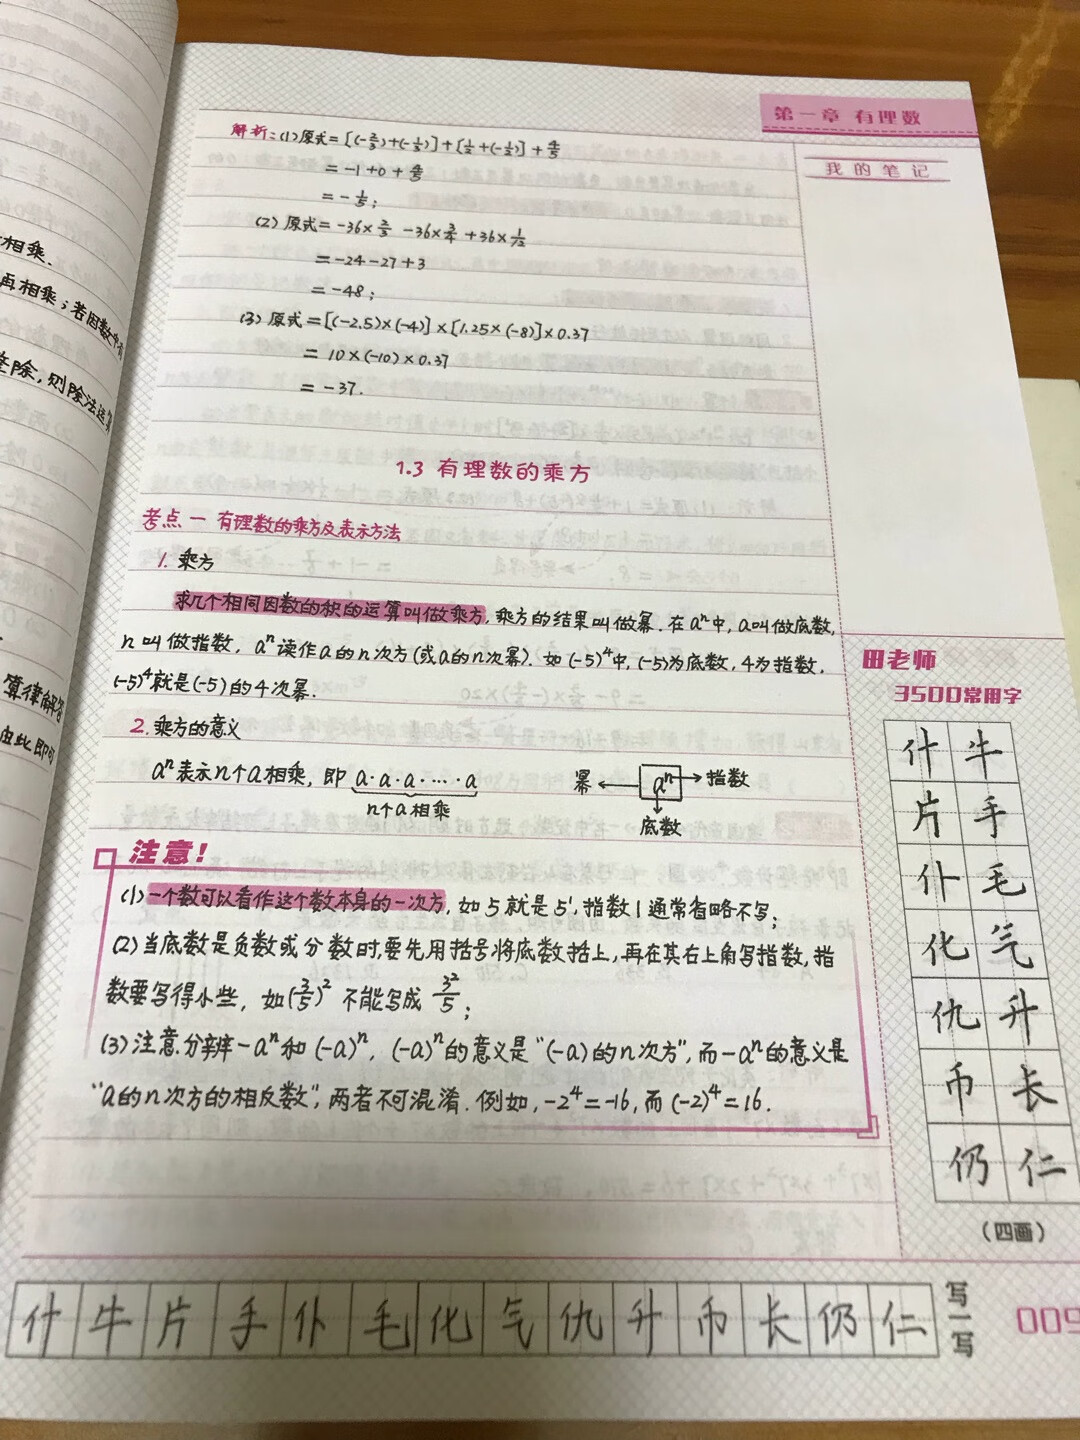 第一章 有理数
我的笔记
解析:(1)原式=[(-2/3)+(-1/3)]+[1/2+(-1/2)]+4/5
=-1+0+4/5
=-1/5;
(2)原式=-36×2/3 -36×3/4 +36×1/12
=-24-27+3
=-48;
(3)原式=[(-2.5)×(-4)]×[1.25×(-8)]×0.37
=10×(-10)×0.37
=-37.
1.3 有理数的乘方
考点一 有理数的乘方及表示方法
1. 乘方
求几个相同因数的积的运算叫做乘方,乘方的结果叫做幂.在aⁿ中,a叫做底数,
n叫做指数,aⁿ读作a的n次方(或a的n次幂).如(-5)⁴中,(-5)为底数,4为指数,
(-5)⁴就是(-5)的4次幂.
2. 乘方的意义
aⁿ表示n个a相乘,即a·a·a·…·a
n个a相乘
幂 aⁿ 指数
底数
注意!
(1)一个数可以看作这个数本身的一次方,如5就是5¹,指数1通常省略不写;
(2)当底数是负数或分数时,要先用括号将底数括上,再在其右上角写指数,指
数要写得小些,如(3/5)²不能写成3²/5;
(3)注意分辨-aⁿ和(-a)ⁿ,(-a)ⁿ的意义是"(-a)的n次方",而-aⁿ的意义是
"a的n次方的相反数",两者不可混淆.例如,-2⁴=-16,而(-2)⁴=16.
田老师
3500常用字
什 牛
片 手
仆 毛
化 气
仇 升
币 长
仍 仁
(四画)
什 牛 片 手 仆 毛 化 气 仇 升 币 长 仍 仁
写一写
009
相乘.
再相乘;若因数中有
除,则除法运算
算律解答
由此即可